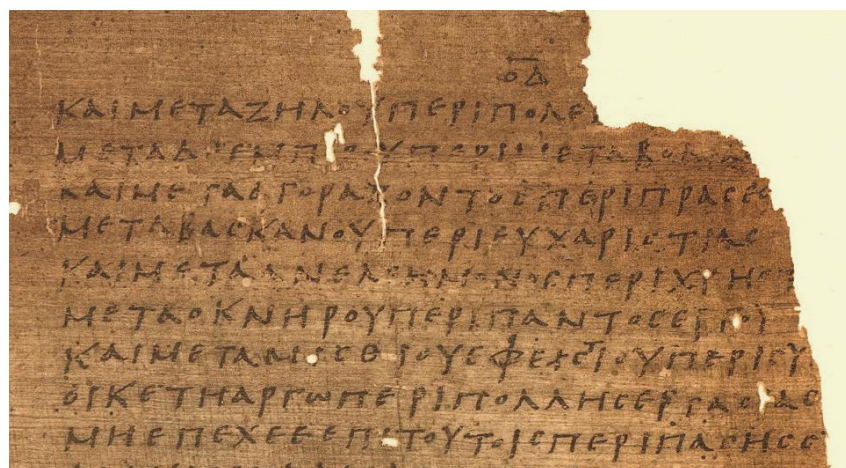 ΟΔ
ΚΑΙΜΕΤΑΖΗΛΟΥΠΕΡΙΠΟΛΕ
ΜΕΤΑ ΕΜΠ ΟΥΠΕΡΙ ΕΤΑΒΟΛ
ΚΑΙΜΕΤΑΑΓΟΡΑΖΟΝΤΟϹΠΕΡΙΠΡΑϹΕΩ
ΜΕΤΑΒΑϹΚΑΝΟΥΠΕΡΙΕΥΧΑΡΙϹΤΙΑϹ
ΚΑΙΜΕΤΑΑΝΕΛΕΗΜΟΝΟϹΠΕΡΙΧΡΗϹ
ΜΕΤΑΟΚΝΗΡΟΥΠΕΡΙΠΑΝΤΟϹΕΡΓΟΥ
ΚΑΙΜΕΤΑΜΙϹΘΙΟΥΕΦΕΤΙΟΥΠΕΡΙϹΥ
ΟΙΚΕΤΗΑΡΓΩΠΕΡΙΠΟΛΛΗϹΕΡΓΑϹΙΑϹ
ΜΗΕΠΕΧΕΕΠΙΤΟΥΤΟΙϹΠΕΡΙΠΑϹΗϹϹ